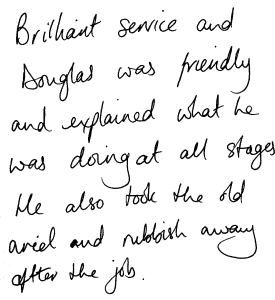 Brilliant service and
Douglas was friendly
and explained what he
was doing at all stages
He also took the old
ariel and rubbish away
after the job.